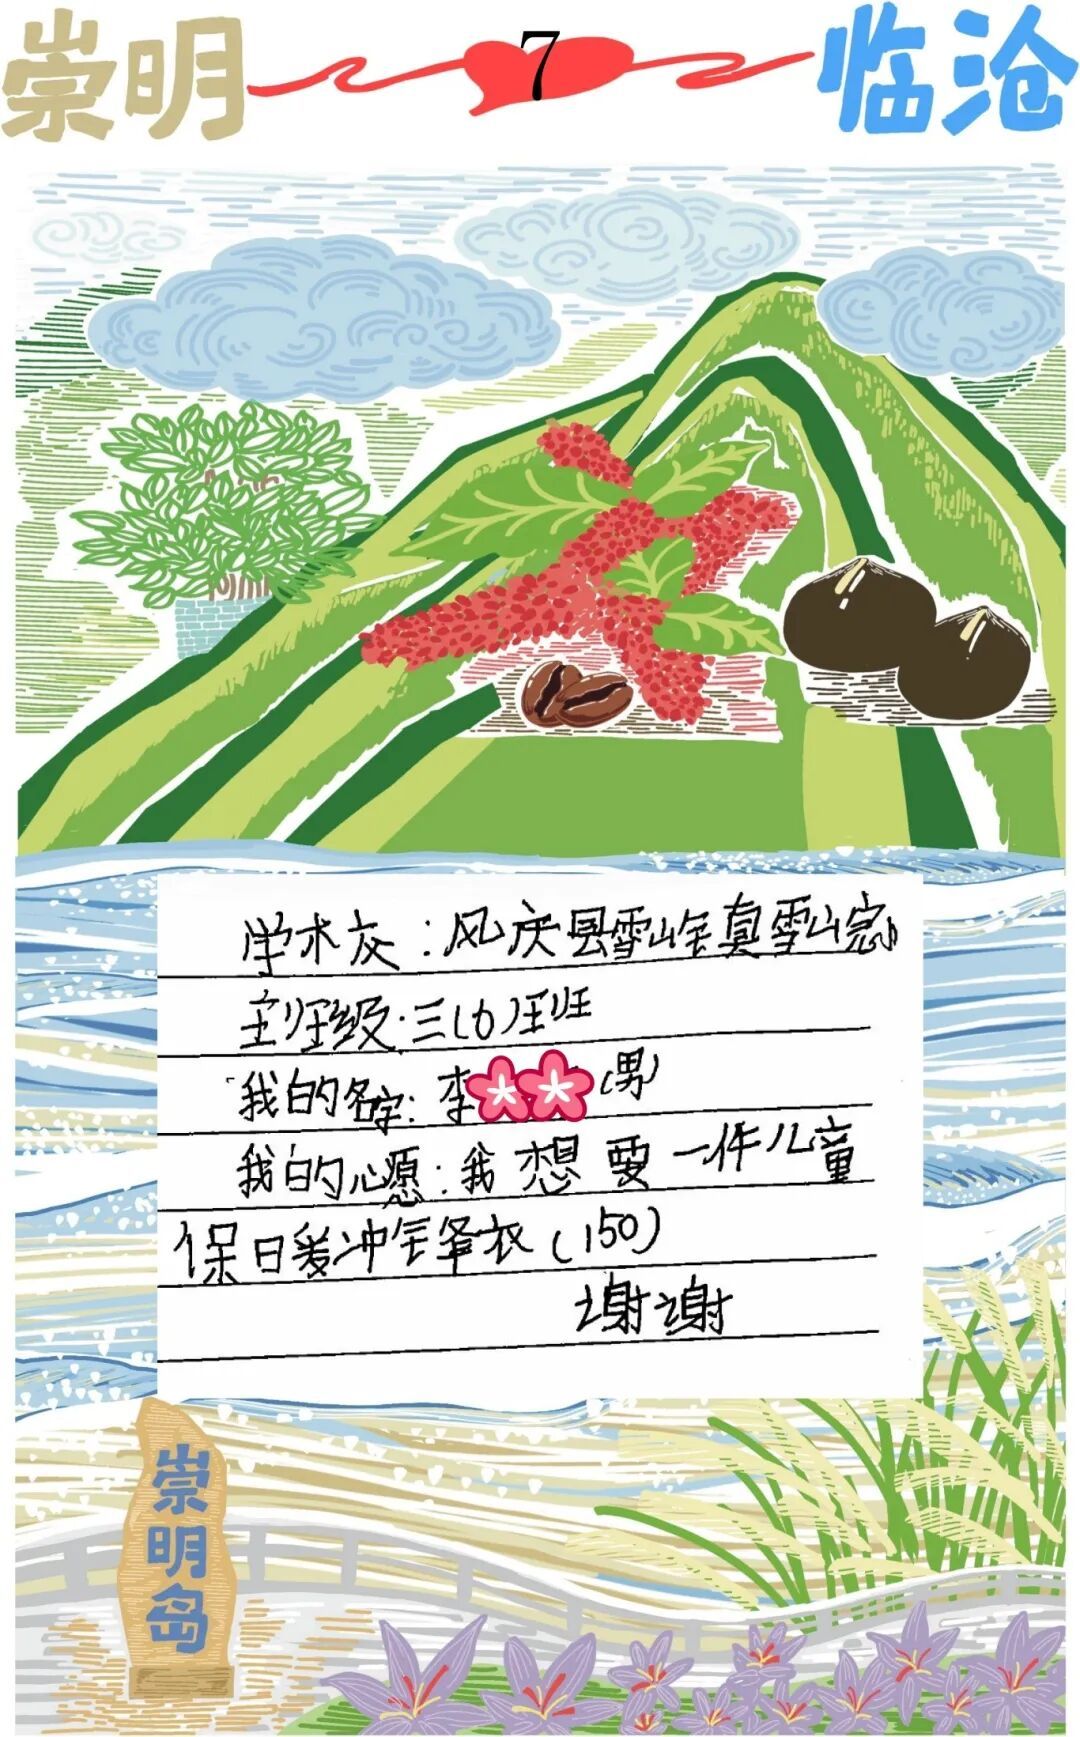 崇明 7 临沧
学术灰：风庆县雪山年真雪山完小
主班级：三(6)班班
我的名字：李 (男)
我的心愿：我想要一件儿童
保日暖冲锋衣(150)
谢谢
崇明岛